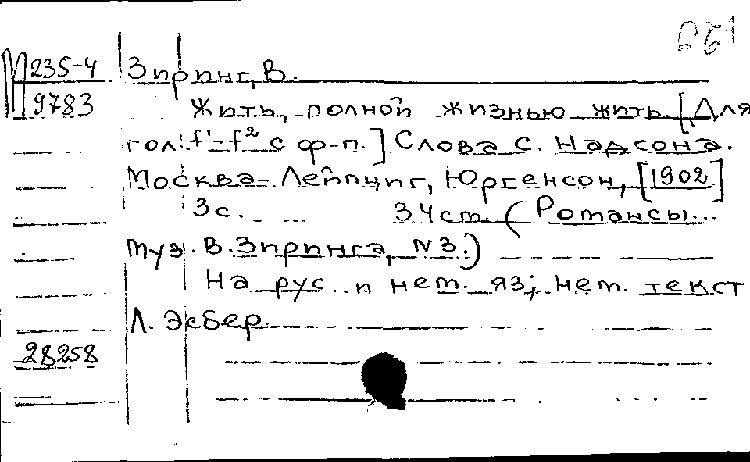 М235-4 Зиринг, В.
9783 Жить, полной жизнью жить [Для
гол. f'-f² с ф-п.] Слова С. Надсона.
Москва-Лейпциг, Юргенсон, [1902]
3с. 34см. (Романсы...
муз. В. Зиринга, №3.)
На рус. и нем. яз; нем. текст
Л. Эсбер
28258